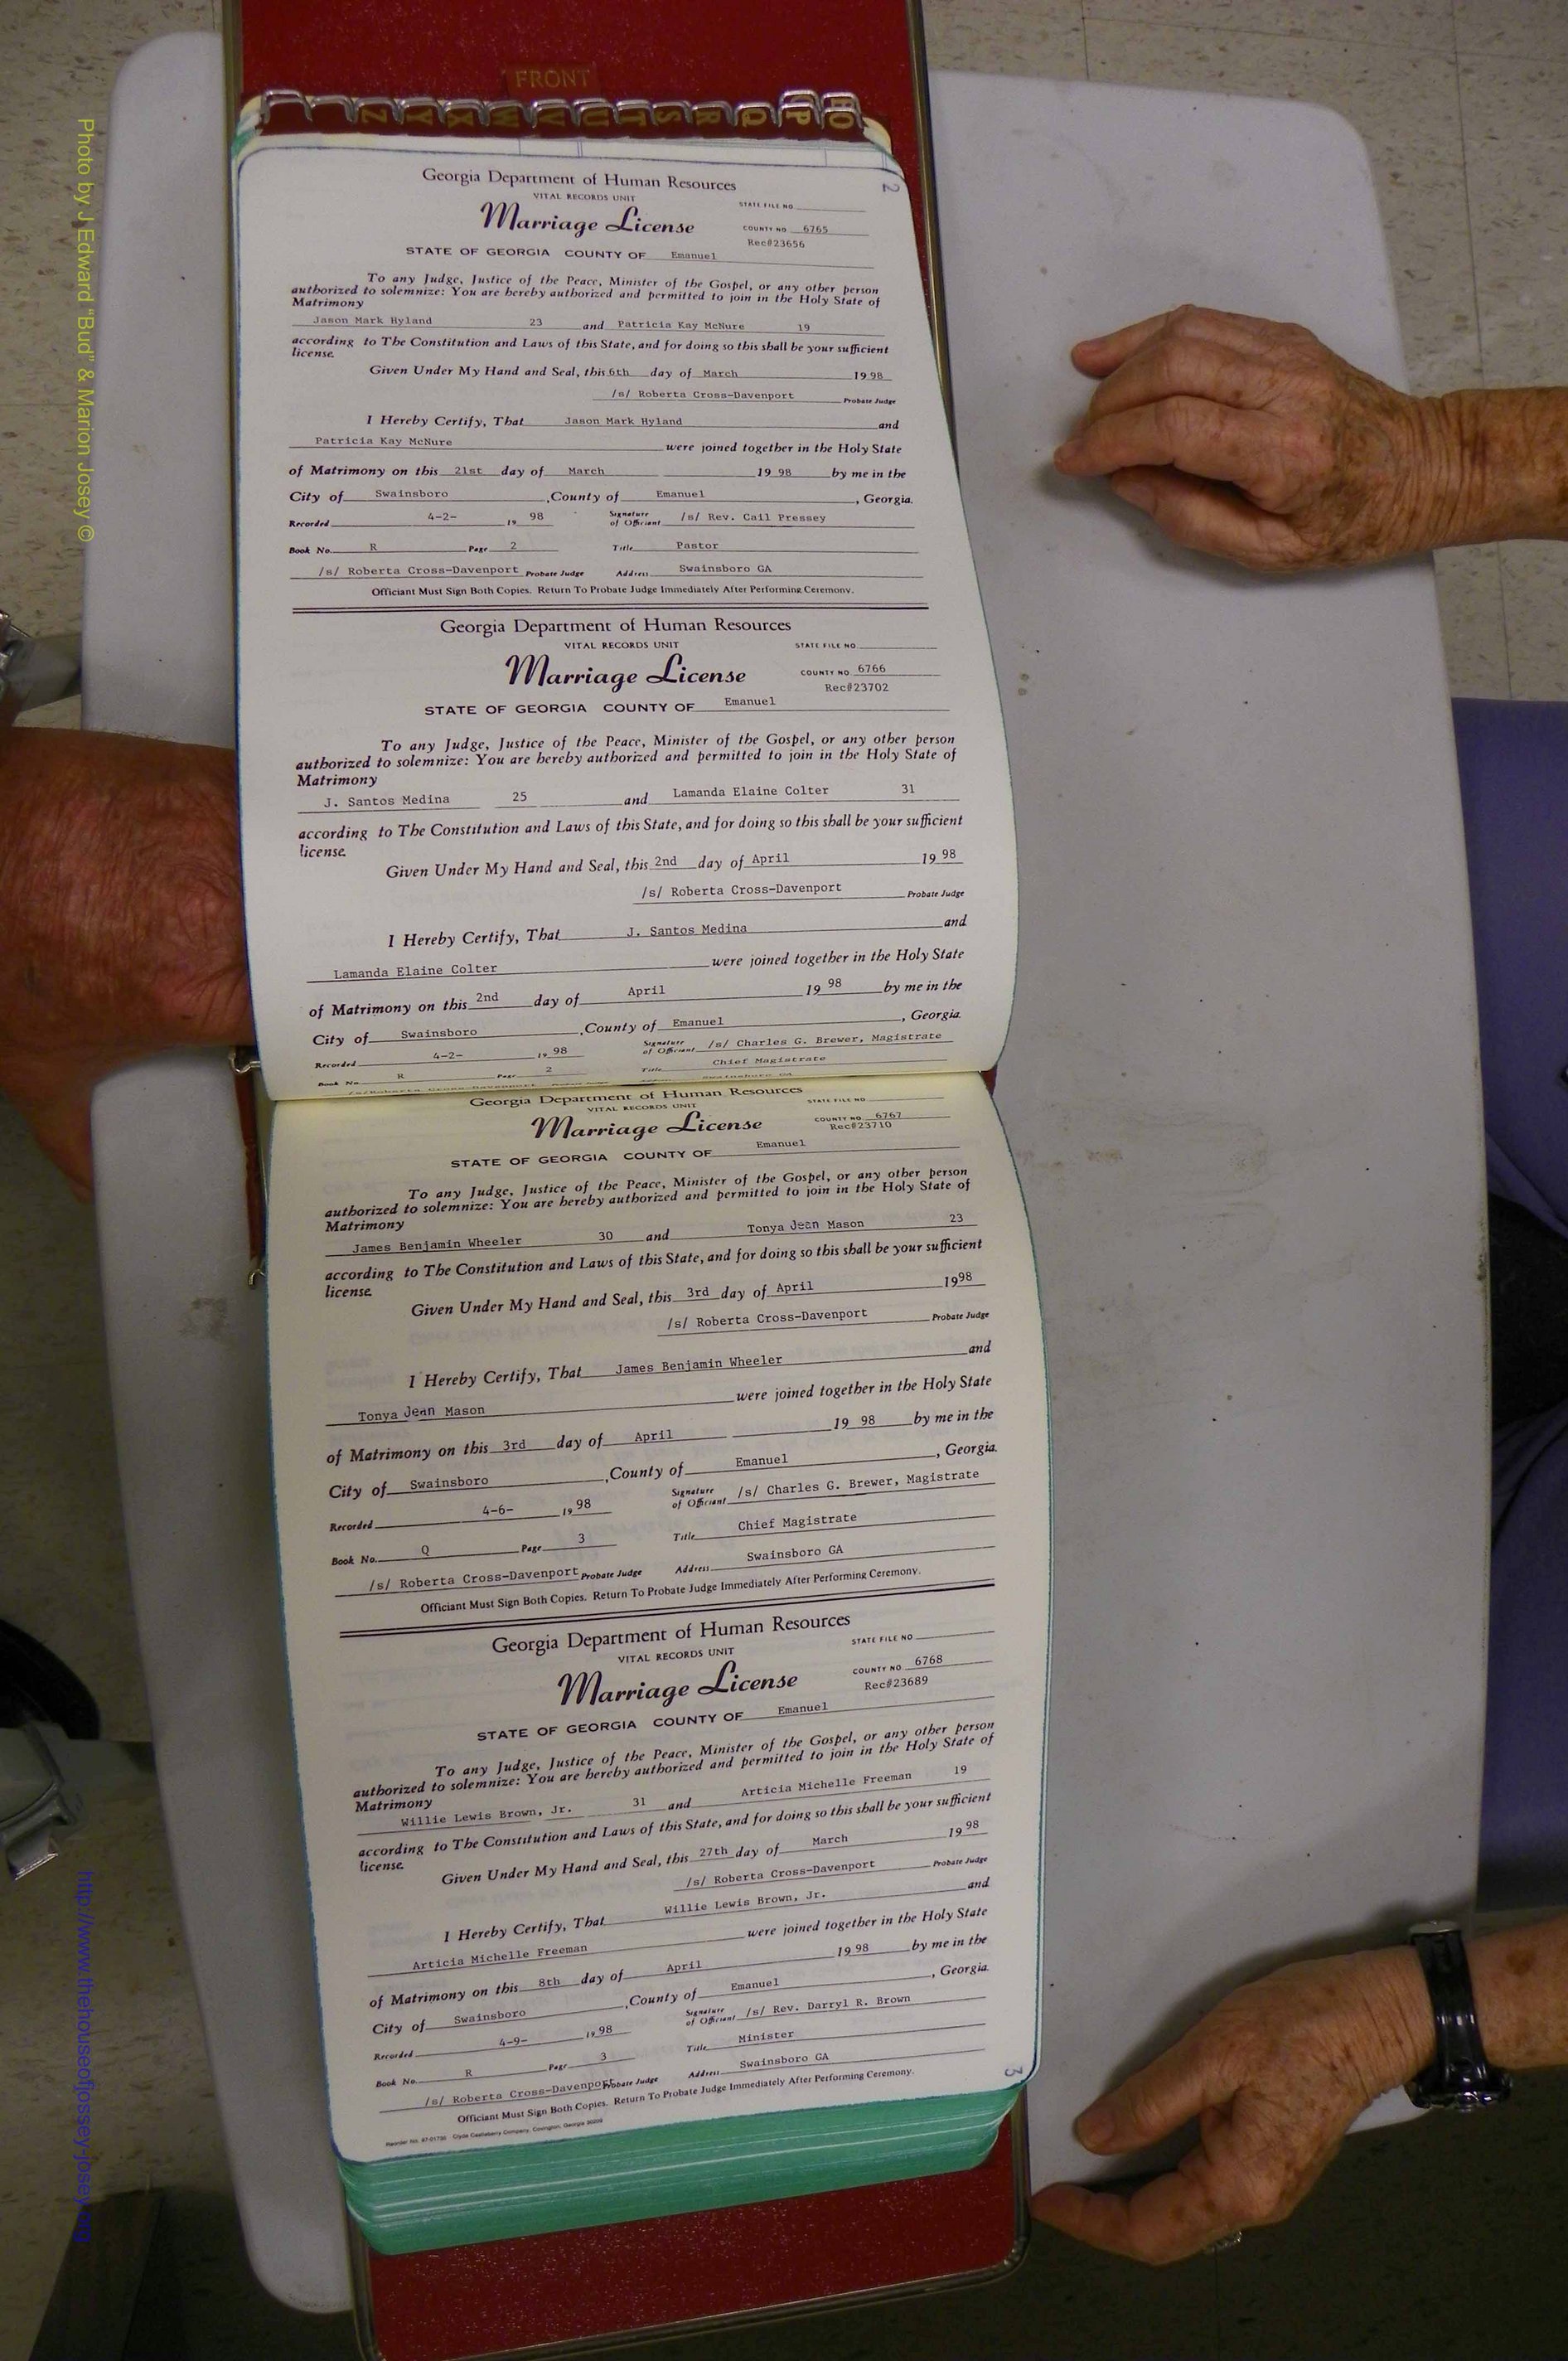 FRONT
Z Y X W V U T S R Q P O
Georgia Department of Human Resources
2
VITAL RECORDS UNIT
STATE FILE NO
Marriage License
COUNTY NO 6765
Rec#23656
STATE OF GEORGIA COUNTY OF Emanuel
To any Judge, Justice of the Peace, Minister of the Gospel, or any other person
authorized to solemnize: You are hereby authorized and permitted to join in the Holy State of
Matrimony
Jason Mark Hyland 23 and Patricia Kay McNure 19
according to The Constitution and Laws of this State, and for doing so this shall be your sufficient
license.
Given Under My Hand and Seal, this 6th day of March 1998
/s/ Roberta Cross-Davenport Probate Judge
I Hereby Certify, That Jason Mark Hyland and
Patricia Kay McNure were joined together in the Holy State
of Matrimony on this 21st day of March 19 98 by me in the
City of Swainsboro, County of Emanuel, Georgia.
Recorded 4-2- 19 98 Signature of Officiant /s/ Rev. Cail Pressey
Book No. R Page 2 Title Pastor
/s/ Roberta Cross-Davenport Probate Judge Address Swainsboro GA
Officiant Must Sign Both Copies. Return To Probate Judge Immediately After Performing Ceremony.
Georgia Department of Human Resources
VITAL RECORDS UNIT
STATE FILE NO
Marriage License
COUNTY NO 6766
Rec#23702
STATE OF GEORGIA COUNTY OF Emanuel
To any Judge, Justice of the Peace, Minister of the Gospel, or any other person
authorized to solemnize: You are hereby authorized and permitted to join in the Holy State of
Matrimony
J. Santos Medina 25 and Lamanda Elaine Colter 31
according to The Constitution and Laws of this State, and for doing so this shall be your sufficient
license.
Given Under My Hand and Seal, this 2nd day of April 19 98
/s/ Roberta Cross-Davenport Probate Judge
I Hereby Certify, That J. Santos Medina and
Lamanda Elaine Colter were joined together in the Holy State
of Matrimony on this 2nd day of April 19 98 by me in the
City of Swainsboro, County of Emanuel, Georgia.
Recorded 4-2- 19 98 Signature of Officiant /s/ Charles G. Brewer, Magistrate
Book No. R Page 2 Title Chief Magistrate
Georgia Department of Human Resources
VITAL RECORDS UNIT
STATE FILE NO
Marriage License
COUNTY NO 6767
Rec#23710
STATE OF GEORGIA COUNTY OF Emanuel
To any Judge, Justice of the Peace, Minister of the Gospel, or any other person
authorized to solemnize: You are hereby authorized and permitted to join in the Holy State of
Matrimony
James Benjamin Wheeler 30 and Tonya Jean Mason 23
according to The Constitution and Laws of this State, and for doing so this shall be your sufficient
license.
Given Under My Hand and Seal, this 3rd day of April 1998
/s/ Roberta Cross-Davenport Probate Judge
I Hereby Certify, That James Benjamin Wheeler and
Tonya Jean Mason were joined together in the Holy State
of Matrimony on this 3rd day of April 19 98 by me in the
City of Swainsboro, County of Emanuel, Georgia.
Recorded 4-6- 19 98 Signature of Officiant /s/ Charles G. Brewer, Magistrate
Book No. Q Page 3 Title Chief Magistrate
/s/ Roberta Cross-Davenport Probate Judge Address Swainsboro GA
Officiant Must Sign Both Copies. Return To Probate Judge Immediately After Performing Ceremony.
Georgia Department of Human Resources
VITAL RECORDS UNIT
STATE FILE NO
Marriage License
COUNTY NO 6768
Rec#23689
STATE OF GEORGIA COUNTY OF Emanuel
To any Judge, Justice of the Peace, Minister of the Gospel, or any other person
authorized to solemnize: You are hereby authorized and permitted to join in the Holy State of
Matrimony
Willie Lewis Brown, Jr. 31 and Articia Michelle Freeman 19
according to The Constitution and Laws of this State, and for doing so this shall be your sufficient
license.
Given Under My Hand and Seal, this 27th day of March 19 98
/s/ Roberta Cross-Davenport Probate Judge
I Hereby Certify, That Willie Lewis Brown, Jr. and
Articia Michelle Freeman were joined together in the Holy State
of Matrimony on this 8th day of April 19 98 by me in the
City of Swainsboro, County of Emanuel, Georgia.
Recorded 4-9- 19 98 Signature of Officiant /s/ Rev. Darryl R. Brown
Book No. R Page 3 Title Minister
/s/ Roberta Cross-Davenport Probate Judge Address Swainsboro GA
Officiant Must Sign Both Copies. Return To Probate Judge Immediately After Performing Ceremony.
3
Photo by J Edward "Bud" & Marion Josey ©
http://www.thehouseofjossey-josey.org